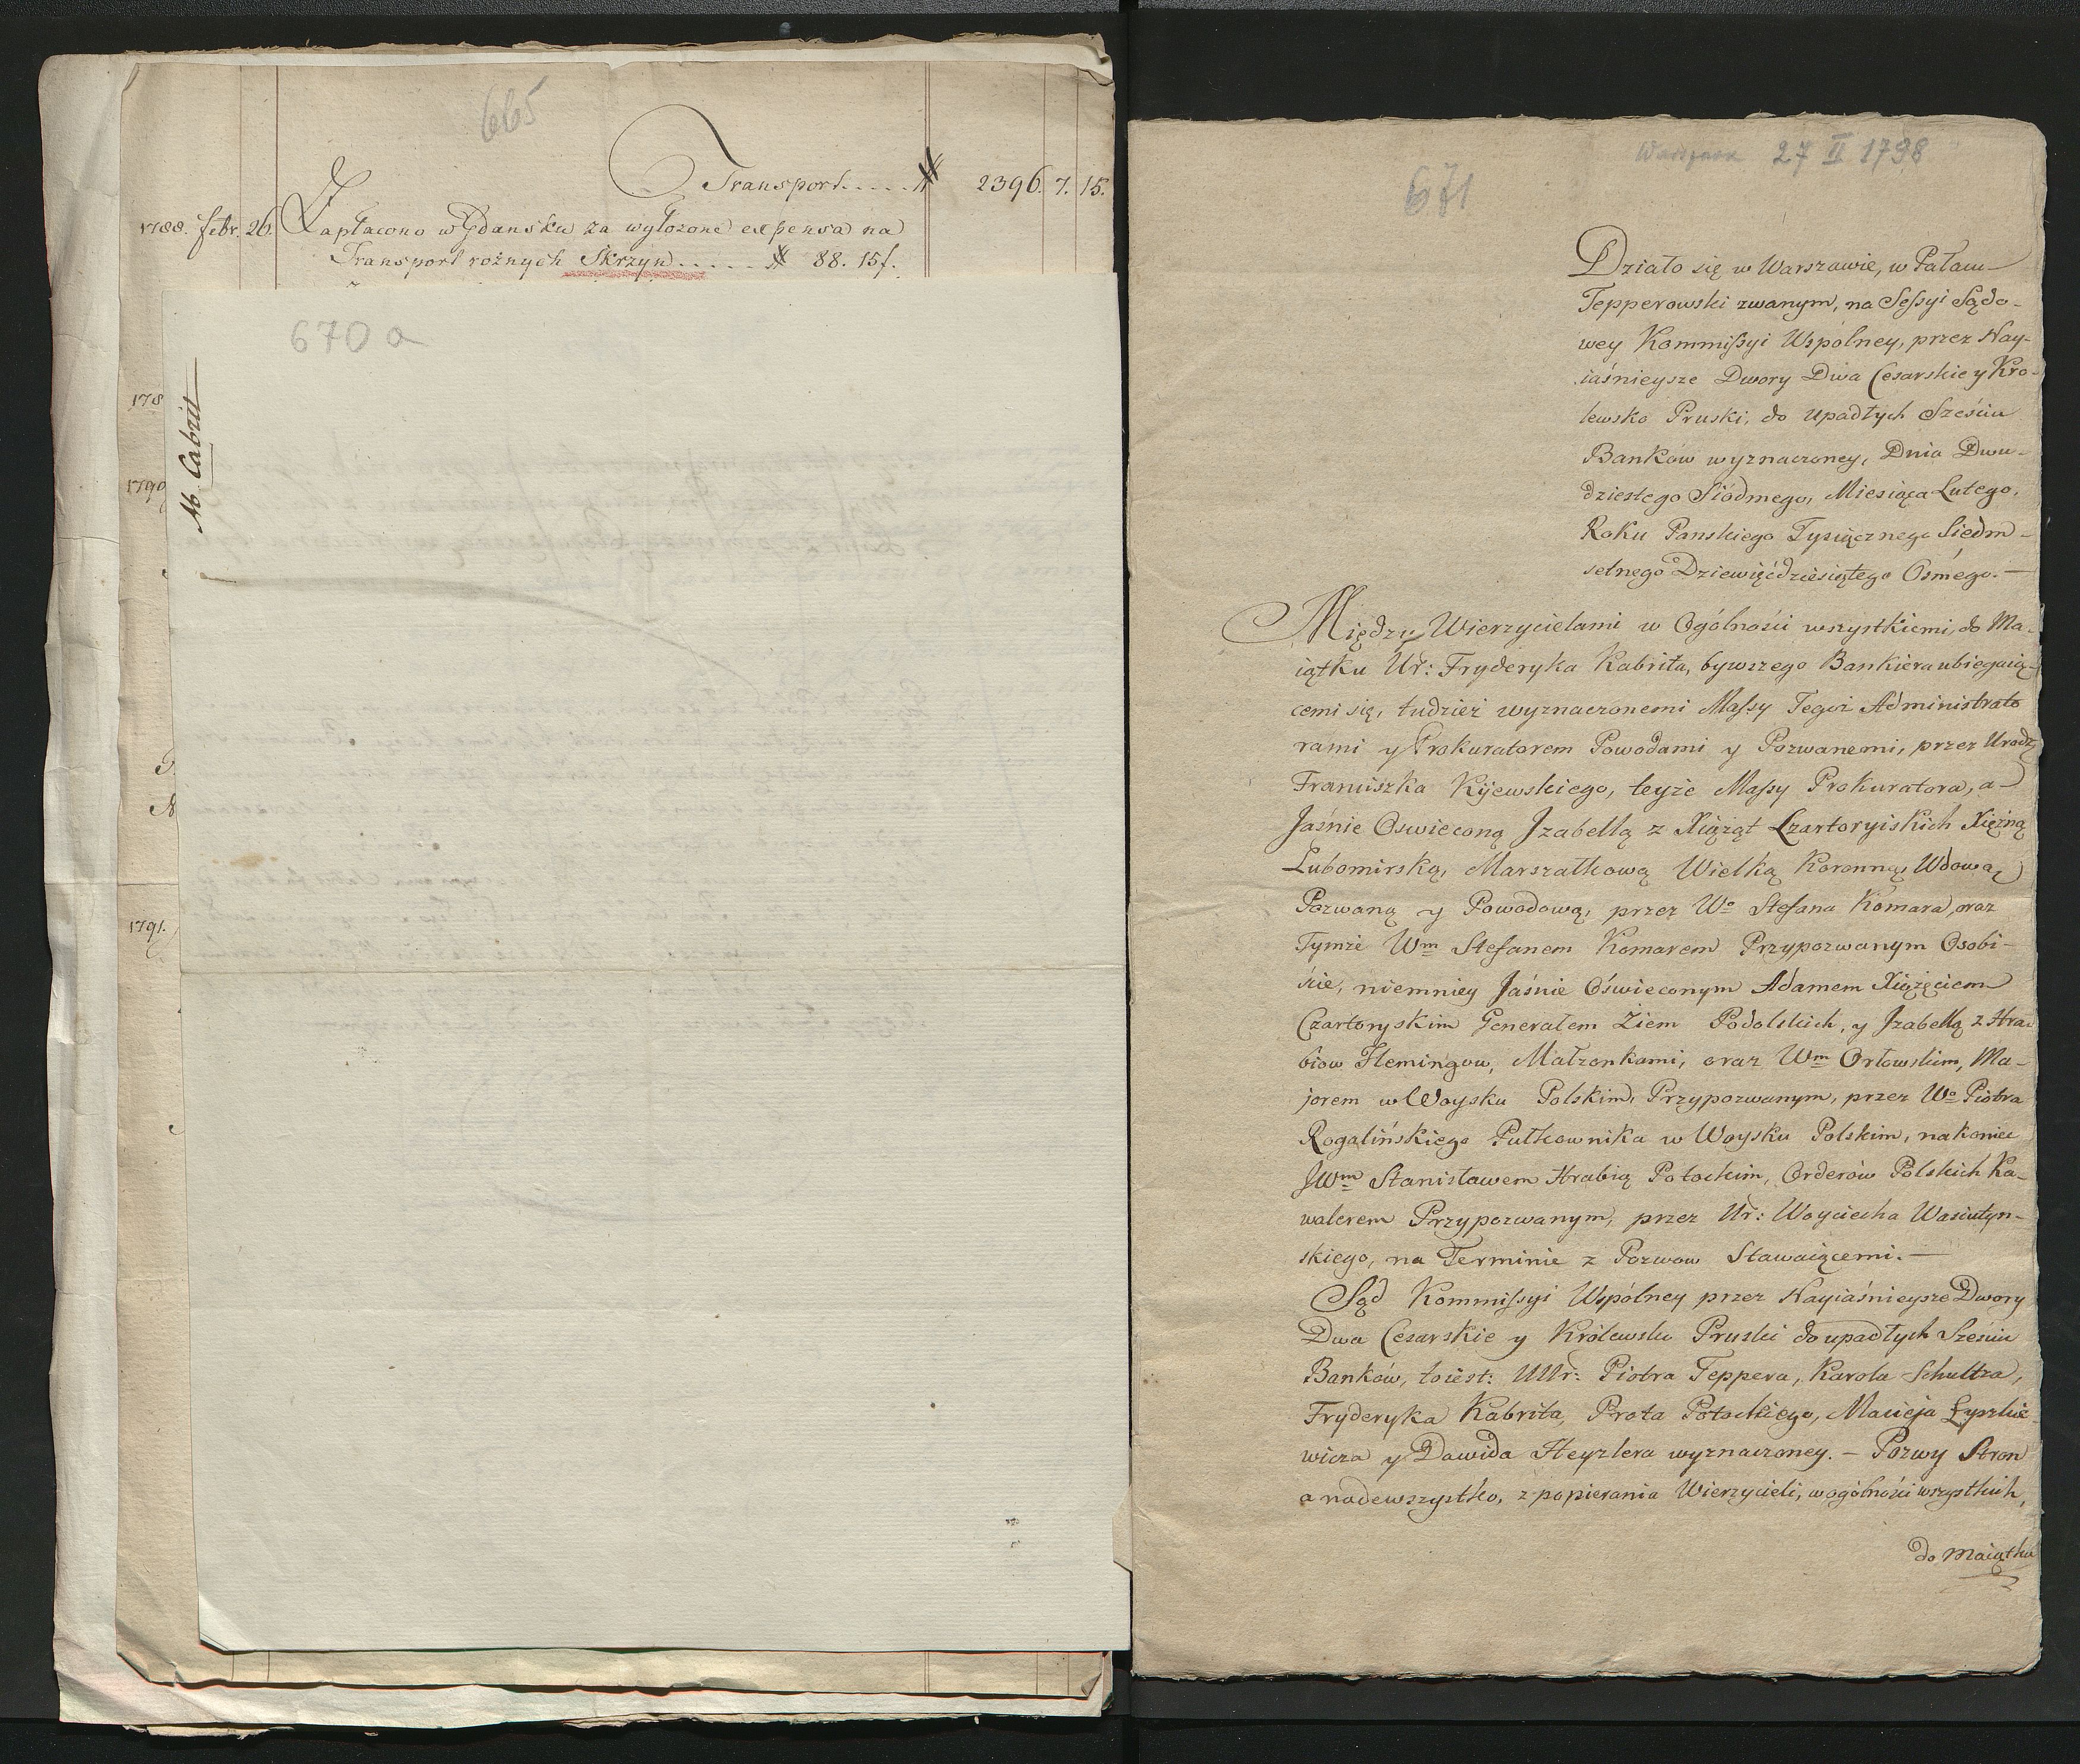 665
Transport..... # 2396. 7. 15.
1788. febr. 26. Zapłacono w Gdansku za wyłozone expensa na
Transport rożnych Skrzyn..... # 88. 15f.
670a
M. Cabrit
178
1790
1791.
Warszawa 27 II 1798
671
Działo się w Warszawie, w Pałacu
Tepperowski zwanym, na Sessyi Sądo-
wey Kommissyi Wspolney, przez Nay-
iaśnieysze Dwory Dwa Cesarskie y Kro-
lewsko Pruski, do upadłych Sześciu
Bankow wyznaczoney, Dnia Dwu-
dziestego Siódmego, Miesiąca Lutego,
Roku Panskiego Tysiącznego Siedm-
setnego Dziewięćdziesiątego Osmego.—
Między Wierzycielami w Ogólności wszystkiemi, do Ma-
iątku Ur: Fryderyka Kabrita, bywszego Bankiera ubiegaią-
cemi się, tudzież wyznaczonemi Massy Tegoż Administrato
rami y Prokuratorem Powodami y Pozwanemi, przez Urodz
Franciszka Kijewskiego, teyże Massy Prokuratora, a—
Jaśnie Oswieconą Izabellą z Xiążąt Czartoryiskich Xiężną
Lubomirską, Marszałkową Wielką Koronną, Wdową,
Pozwaną y Powodową, przez Wo Stefana Komara, oraz
Tymże Wm Stefanem Komarem Przypozwanym Osobi-
ście, niemniey Jaśnie Oświeconym Adamem Xiążęciem
Czartoryskim Generałem Ziem Podolskich, y Izabellą z Hra-
biow Flemingow, Małżonkami, oraz Wm Orłowskim, Ma-
jorem w Woysku Polskim, Przypozwanym, przez Wo Piotra
Rogalińskiego Pułkownika w Woysku Polskim, nakoniec
JWm Stanisławem Hrabią Potockim, Orderów Polskich Ka-
walerem Przypozwanym, przez Ur: Woyciecha Wasiutyn-
skiego, na Terminie z Pozwow Stawaiącemi.—
Sąd Kommissyi Wspólney przez Nayiaśnieysze Dwory
Dwa Cesarskie y Królewsko Pruski do upadłych Sześciu
Banków, toiest: UUr: Piotra Teppera, Karola Schultza,
Fryderyka Kabrita, Prota Potockiego, Macieja Łyszkie-
wicza y Dawida Heyzlera wyznaczoney.— Pozwy Stron
a nadewszystko, z popierania Wierzycieli, w ogólności wszystkich,
do maiątku